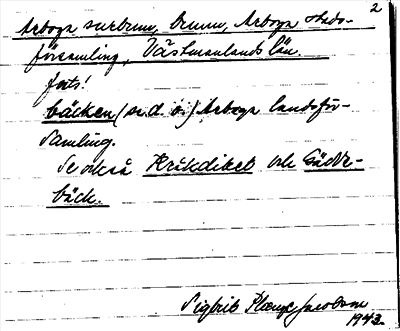 2
Arboga surbrunn, brunn, Arboga stads-
församling, Västmanlands län.
forts!
bäcken (se d. o.) Arboga landsför-
samling.
Se också Kråkdiket och Gädde-
bäck.
Sigbrit Plænge Jacobson
1943.